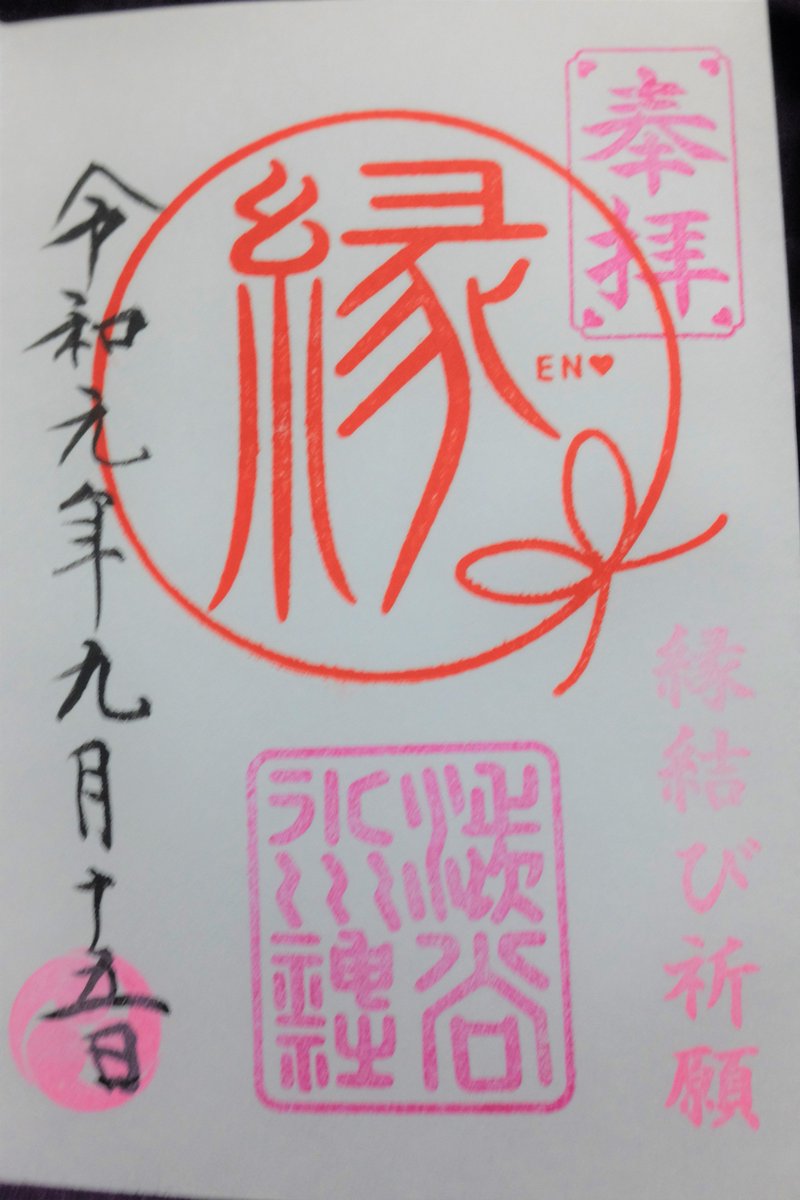 奉拝
縁結び祈願
縁
EN♥
渋谷
氷川
神社
令和元年九月十五日